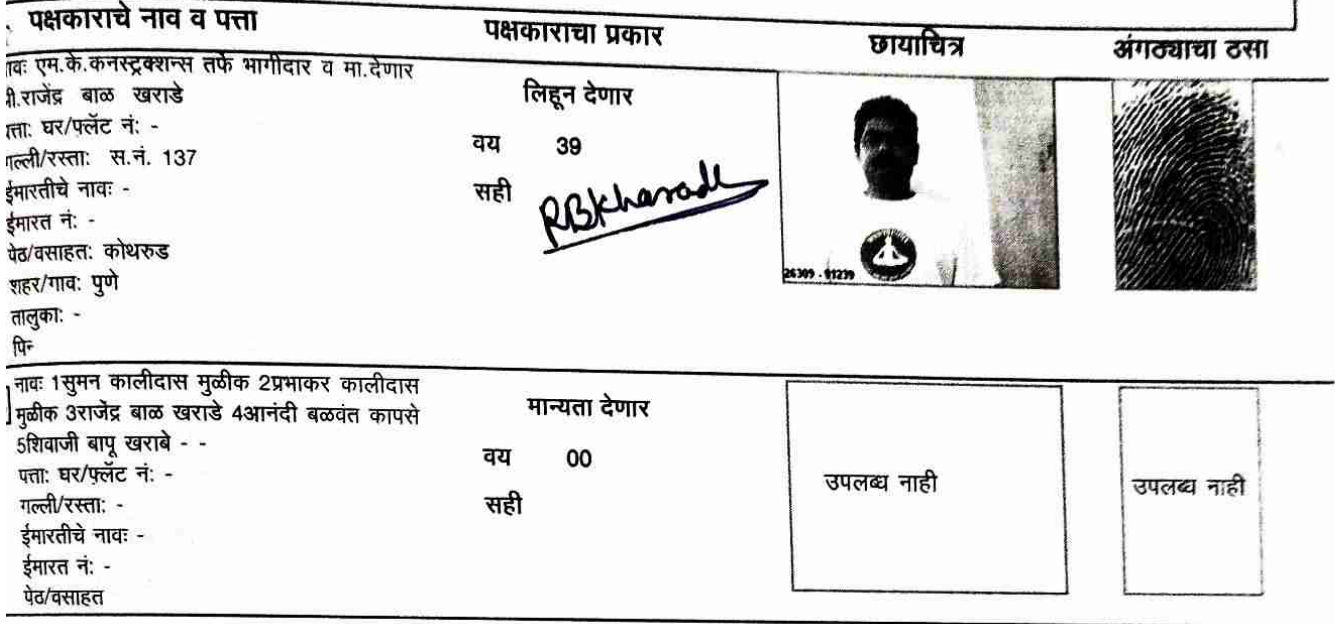 पक्षकाराचे नाव व पत्ता पक्षकाराचा प्रकार छायाचित्र अंगठ्याचा ठसा
एम.के.कनस्ट्रक्शन्स तर्फे भागीदार व मा.देणार
राजेंद्र बाळ खराडे
घर/फ्लॅट नं: -
गल्ली/रस्ता: स.नं. 137
ईमारतीचे नावः -
ईमारत नं: -
पेठ/वसाहत: कोथरुड
शहर/गावः पुणे
तालुका: -
पिन
लिहून देणार
वय 39
सही RBKharade
26309 - 91239
नावः 1सुमन कालीदास मुळीक 2प्रभाकर कालीदास
मुळीक 3राजेंद्र बाळ खराडे 4आनंदी बळवंत कापसे
5शिवाजी बापू खराबे - -
पत्ता: घर/फ्लॅट नं: -
गल्ली/रस्ता: -
ईमारतीचे नावः -
ईमारत नं: -
पेठ/वसाहत
मान्यता देणार
वय 00
सही
उपलब्ध नाही
उपलब्ध नाही